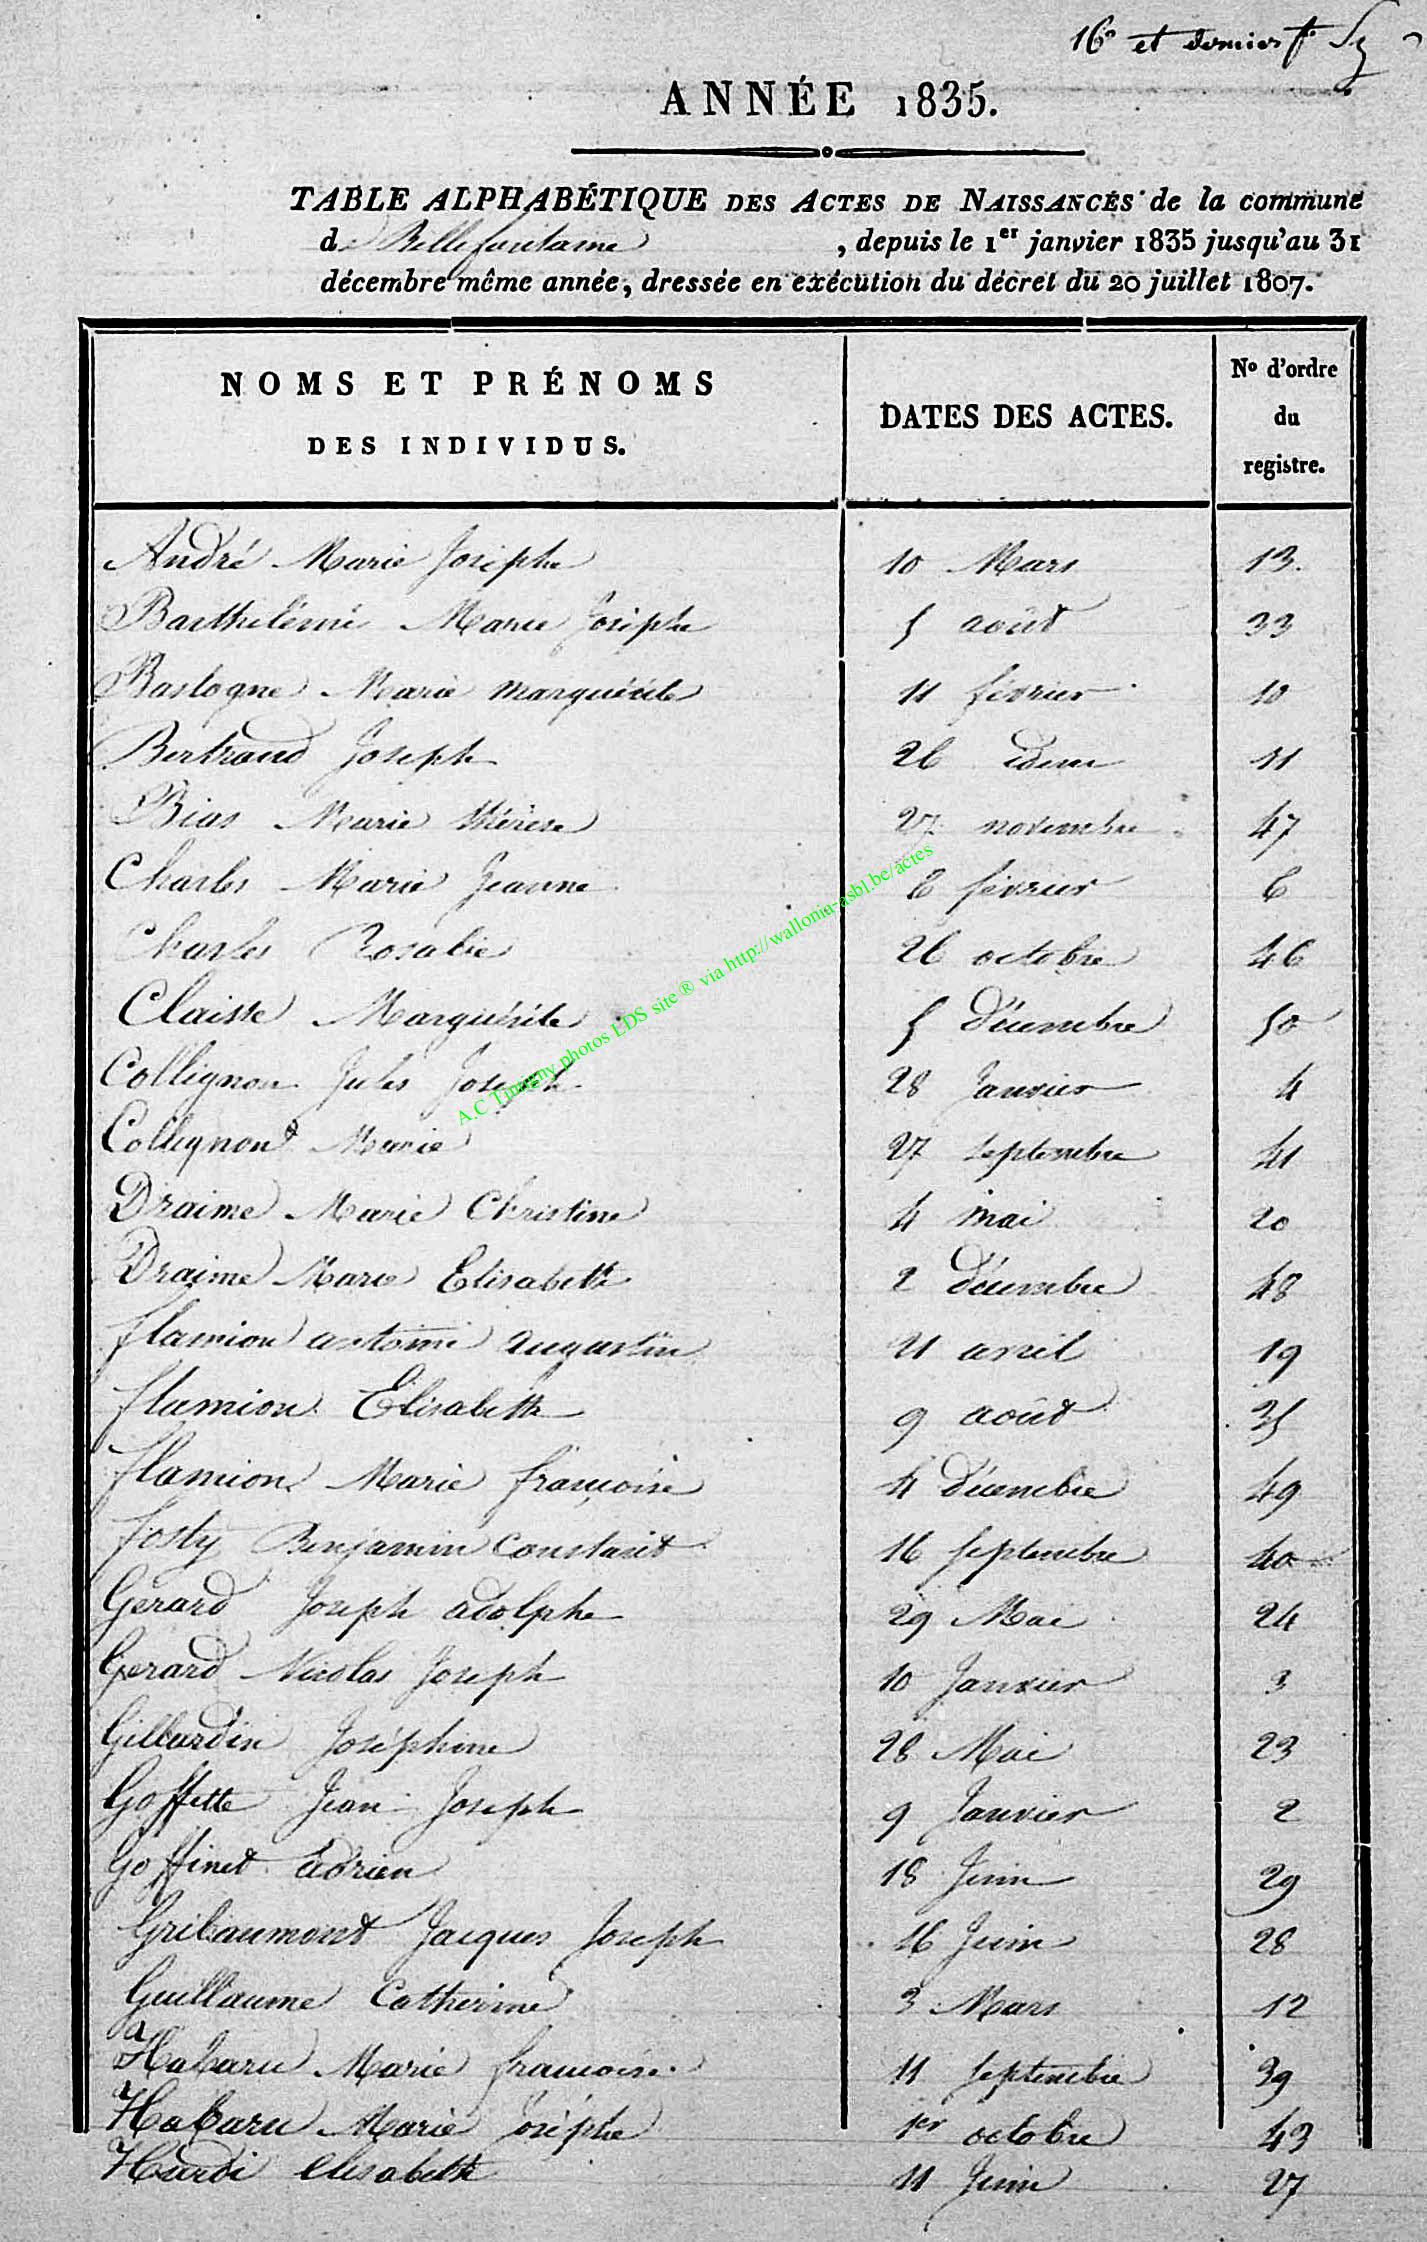 16e et dernier f°
ANNÉE 1835.
TABLE ALPHABÉTIQUE DES ACTES DE NAISSANCES de la commune
de Bellefontaine, depuis le 1er janvier 1835 jusqu'au 31
décembre même année, dressée en exécution du décret du 20 juillet 1807.
NOMS ET PRÉNOMS DES INDIVIDUS. DATES DES ACTES. No d'ordre du registre.
André Marie Josèphe 10 Mars 13.
Barthélémi Marie Josèphe 5 août 33
Bastogne Marie Marguérite 11 février 10
Bertrand Joseph 26 idem 11
Bias Marie thérèse 27 novembre 47
Charles Marie Jeanne 6 février 6
Charles Rosalie 26 octobre 46
Claisse Marguérite 5 décembre 50
Collignon Jules Joseph 28 Janvier 4
Collignon Marie 27 septembre 41
Draime Marie Christine 4 mai 20
Draime Marie Elisabeth 2 décembre 48
flamion antoine augustin 21 avril 19
flamion Elisabeth 9 août 35
flamion Marie françoise 4 décembre 49
fosty Benjamin Constant 16 septembre 40
Gérard Joseph adolphe 29 Mai 24
Gerard Nicolas Joseph 10 Janvier 3
Gillardin Joséphine 28 Mai 23
Goffette Jean Joseph 9 Janvier 2
Goffinet adrien 18 Juin 29
Gribaumont Jacques Joseph 16 Juin 28
Guillaume Catherine 3 Mars 12
Habaru Marie françoise 11 septembre 39
Habaru Marie Josèphe 1er octobre 43
Hardi elisabeth 11 Juin 27
A.C Tintigny photos LDS site ® via http://wallonia-asbl.be/actes